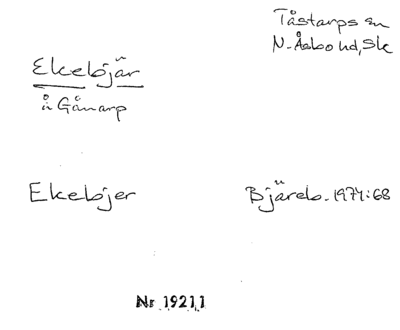 Tåstarps sn
N. Åsbo hd, Sk
Ekebjär
å Gånarp
Ekebjer
Bjäreb. 1974:68
Nr 19211